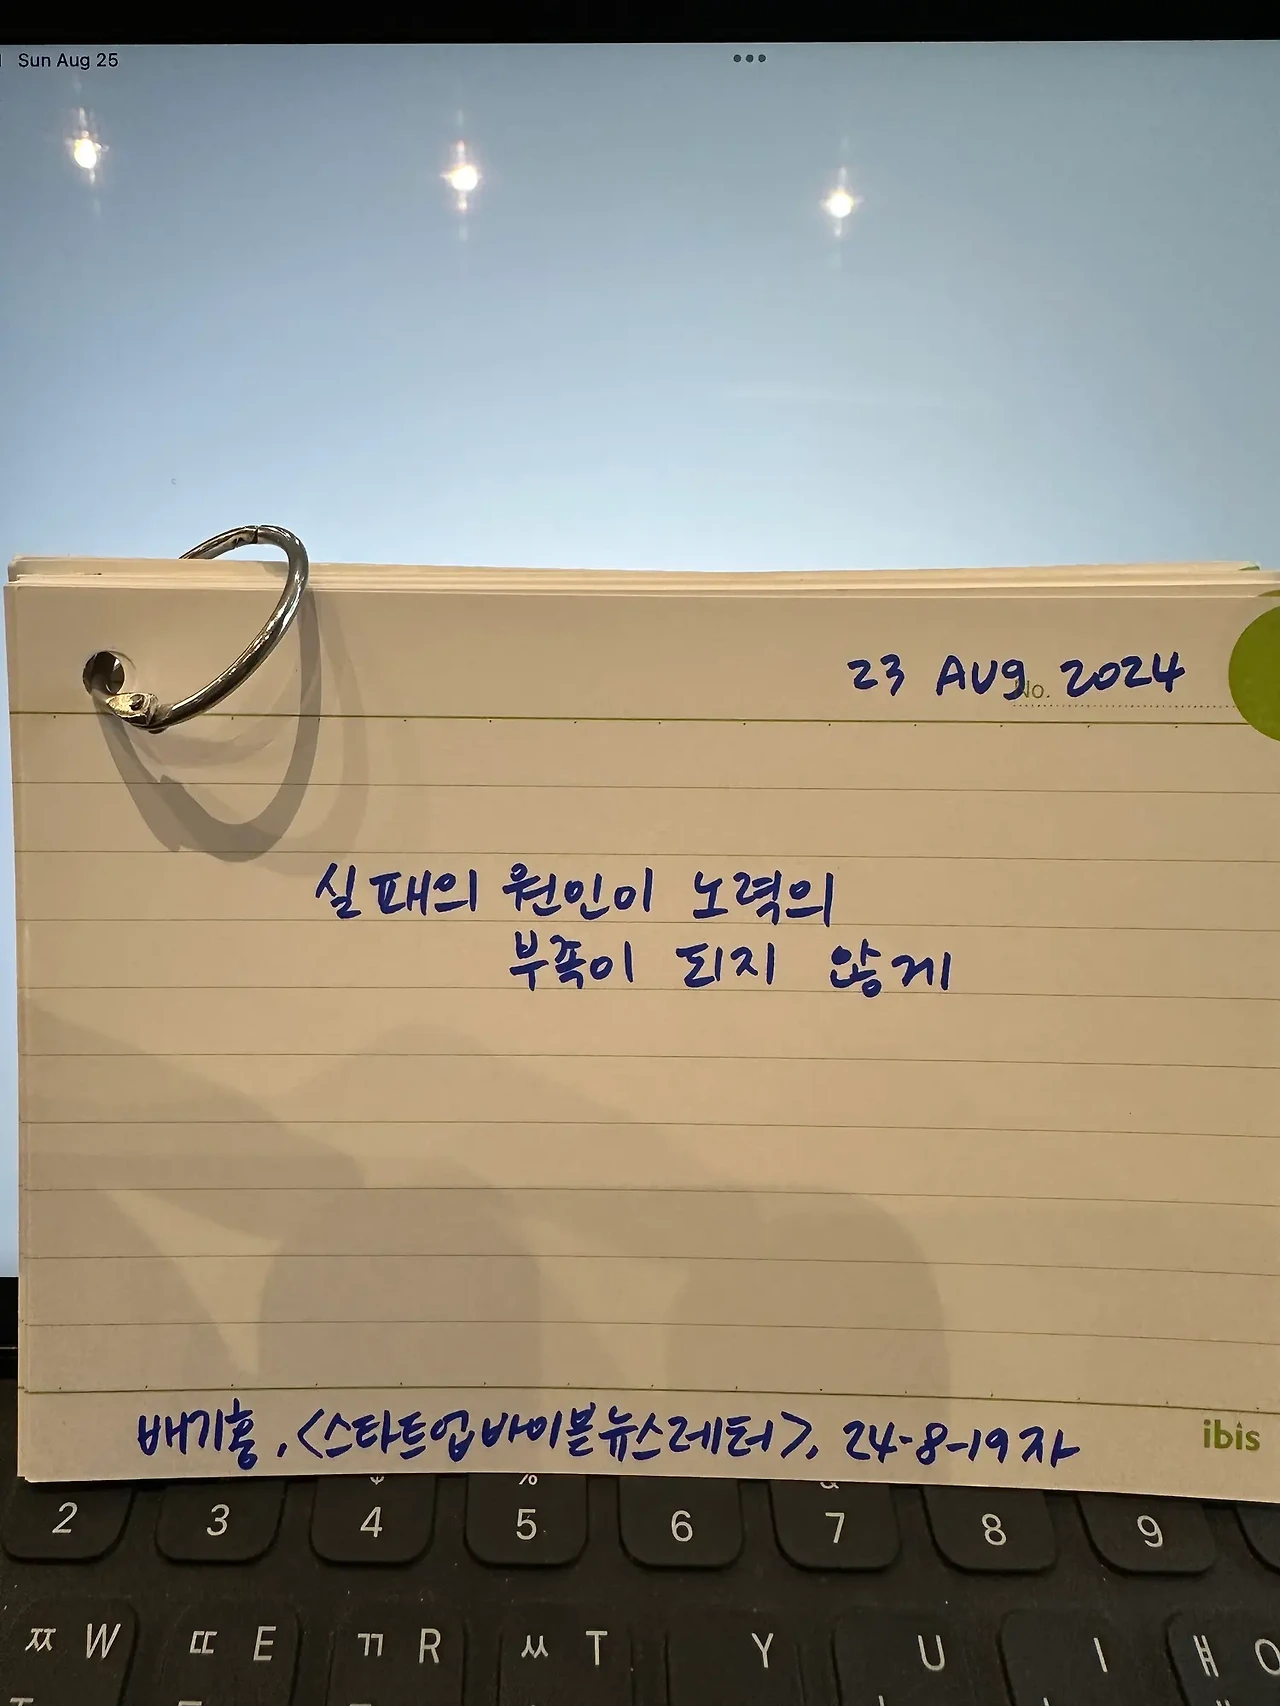 Sun Aug 25
23 AUg 2024
No.
실패의 원인이 노력의
부족이 되지 않게
배기홍, <스타트업바이블뉴스레터>, 24-8-19자
ibis
%
2 3 4 5 6 7 8 9
ㅉ W ㄸ E ㄲ R ㅆ T Y U I ㅒ O